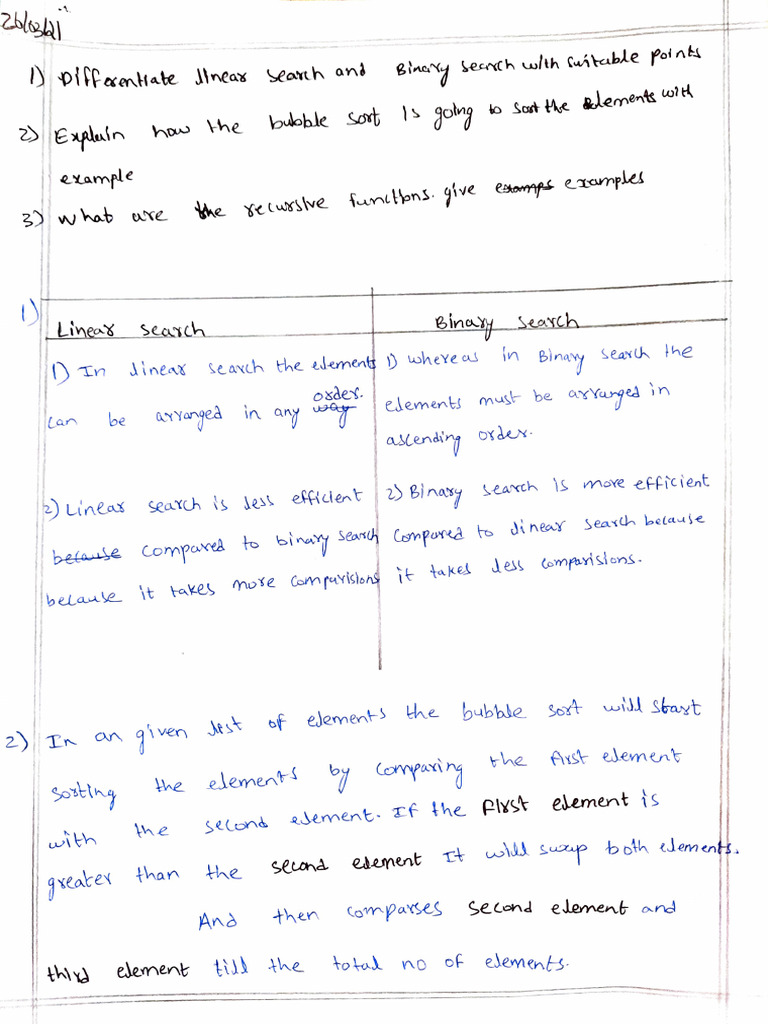 26/03/21
1) Differentiate linear search and Binary search with suitable points
2) Explain how the bubble sort is going to sort the elements with
example
3) What are the recursive functions. give examps examples
1)
Linear search
Binary search
1) In linear search the elements
can be arranged in any way order.
1) whereas in Binary search the
elements must be arranged in
ascending order.
2) Linear search is less efficient
because compared to binary search
because it takes more comparisions
2) Binary search is more efficient
compared to linear search because
it takes less comparisions.
2) In an given list of elements the bubble sort will start
sorting the elements by comparing the first element
with the second element. If the first element is
greater than the second element It will swap both elements.
And then comparses second element and
third element till the total no of elements.